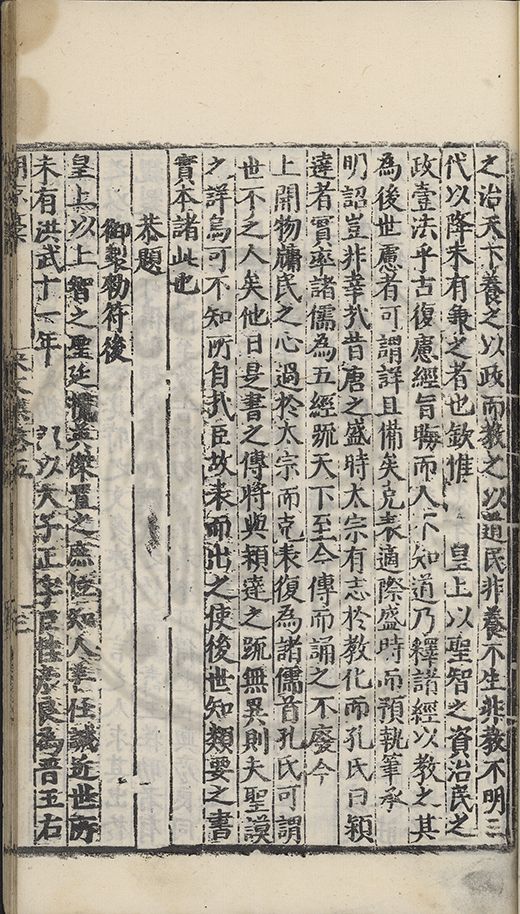 之治天下養之以政而教之以道民非養不生非教不明三
代以降未有兼之者也欽惟 皇上以聖智之資治民之
政壹法乎古復慮經旨晦而人不知道乃釋諸經以教之其
為後世慮者可謂詳且備矣克表適際盛時而預執筆承
明詔豈非幸哉昔唐之盛時太宗有志於教化而孔氏曰穎
達者實率諸儒為五經疏天下至今傳而誦之不廢今
上開物牖民之心過於太宗而克表復為諸儒首孔氏可謂
世不乏人矣他日是書之傳將與穎達之疏無異則夫聖謨
之詳烏可不知所自哉臣故表而出之使後世知類要之書
實本諸此也
恭題
御製勅符後
皇上以上智之聖延攬英傑置之庶位知人善任誠近世所
未有洪武十一年 以太子正字臣桂彥良為晉王右